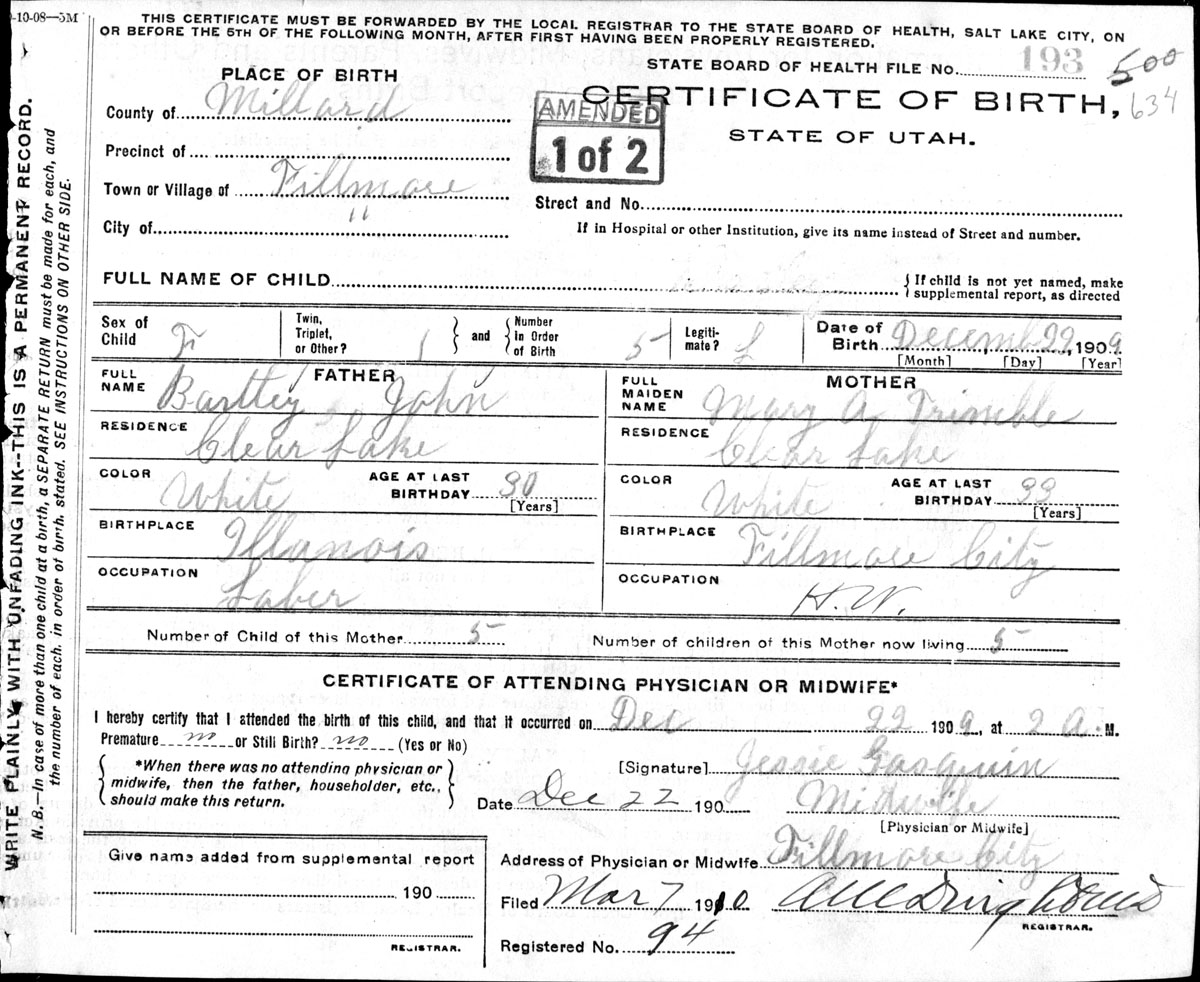 -10-08—5M
THIS CERTIFICATE MUST BE FORWARDED BY THE LOCAL REGISTRAR TO THE STATE BOARD OF HEALTH, SALT LAKE CITY, ON
OR BEFORE THE 5TH OF THE FOLLOWING MONTH, AFTER FIRST HAVING BEEN PROPERLY REGISTERED.
STATE BOARD OF HEALTH FILE No. 193 500
634
PLACE OF BIRTH
CERTIFICATE OF BIRTH,
STATE OF UTAH.
AMENDED
1 of 2
County of Millard
Precinct of
Town or Village of Fillmore
City of "
Street and No.
If in Hospital or other Institution, give its name instead of Street and number.
FULL NAME OF CHILD
{ If child is not yet named, make
supplemental report, as directed
Sex of Child F
Twin, Triplet, or Other? 1 } and { Number in Order of Birth 5
Legiti-mate? L
Date of Birth December 22, 1909
[Month] [Day] [Year]
FATHER
FULL NAME Bartley John
RESIDENCE Clear Lake
COLOR White AGE AT LAST BIRTHDAY 30
[Years]
BIRTHPLACE Illanois
OCCUPATION Laber
MOTHER
FULL MAIDEN NAME Mary A Trimble
RESIDENCE Clear Lake
COLOR White AGE AT LAST BIRTHDAY 33
[Years]
BIRTHPLACE Fillmore City
OCCUPATION H.W.
Number of Child of this Mother 5 Number of children of this Mother now living 5
CERTIFICATE OF ATTENDING PHYSICIAN OR MIDWIFE*
I hereby certify that I attended the birth of this child, and that it occurred on Dec 22 1909, at 2 A. M.
Premature no or Still Birth? no (Yes or No)
{ *When there was no attending physician or
midwife, then the father, householder, etc.,
should make this return. }
[Signature] Jessie Gasquin
Date Dec 22 190 Midwife
[Physician or Midwife]
Give name added from supplemental report
190
REGISTRAR.
Address of Physician or Midwife Fillmore City
Filed Mar 7 1910
REGISTRAR.
Registered No. 94
WRITE PLAINLY, WITH UNFADING INK--THIS IS A PERMANENT RECORD.
N. B.—In case of more than one child at a birth, a SEPARATE RETURN must be made for each, and
the number of each, in order of birth, stated. SEE INSTRUCTIONS ON OTHER SIDE.